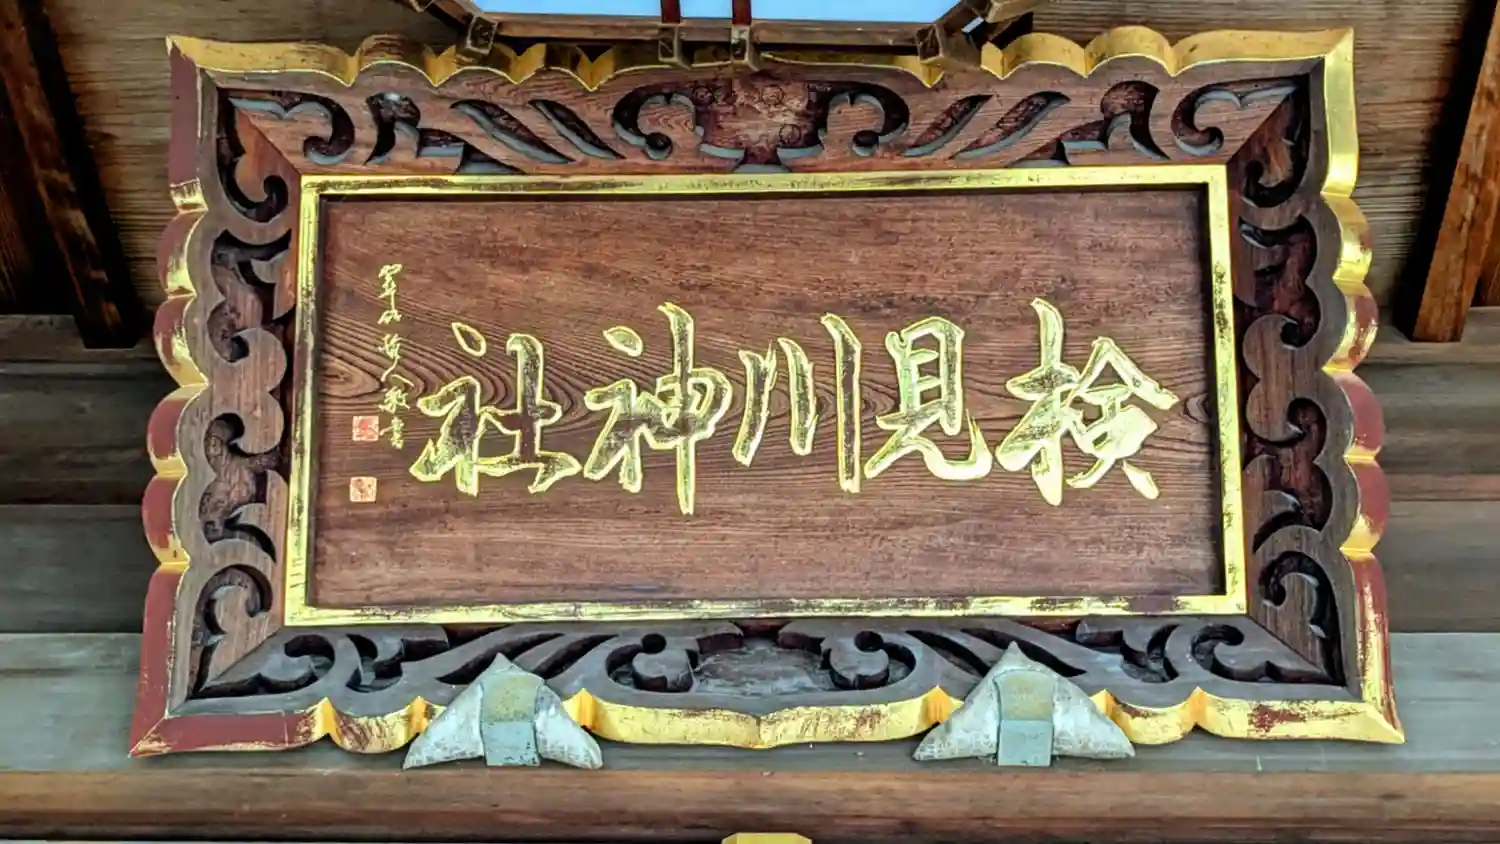 検見川神社